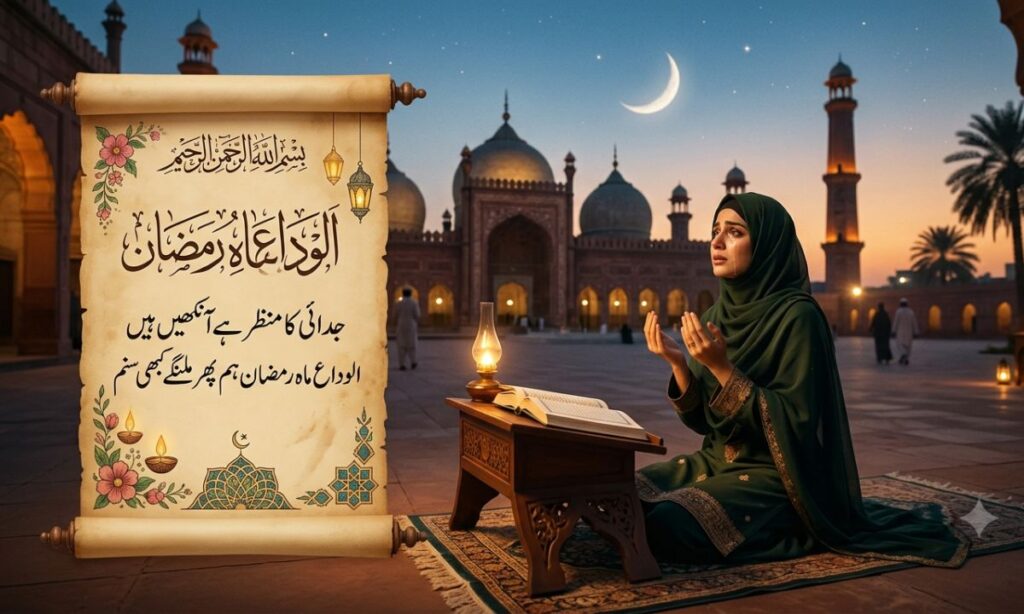 بسم الله الرحمن الرحيم
الوداع ماہ رمضان
جدائی کا منظر ہے آنکھیں ہیں
الوداع ماہ رمضان ہم پھر ملنگے کبھی سنم